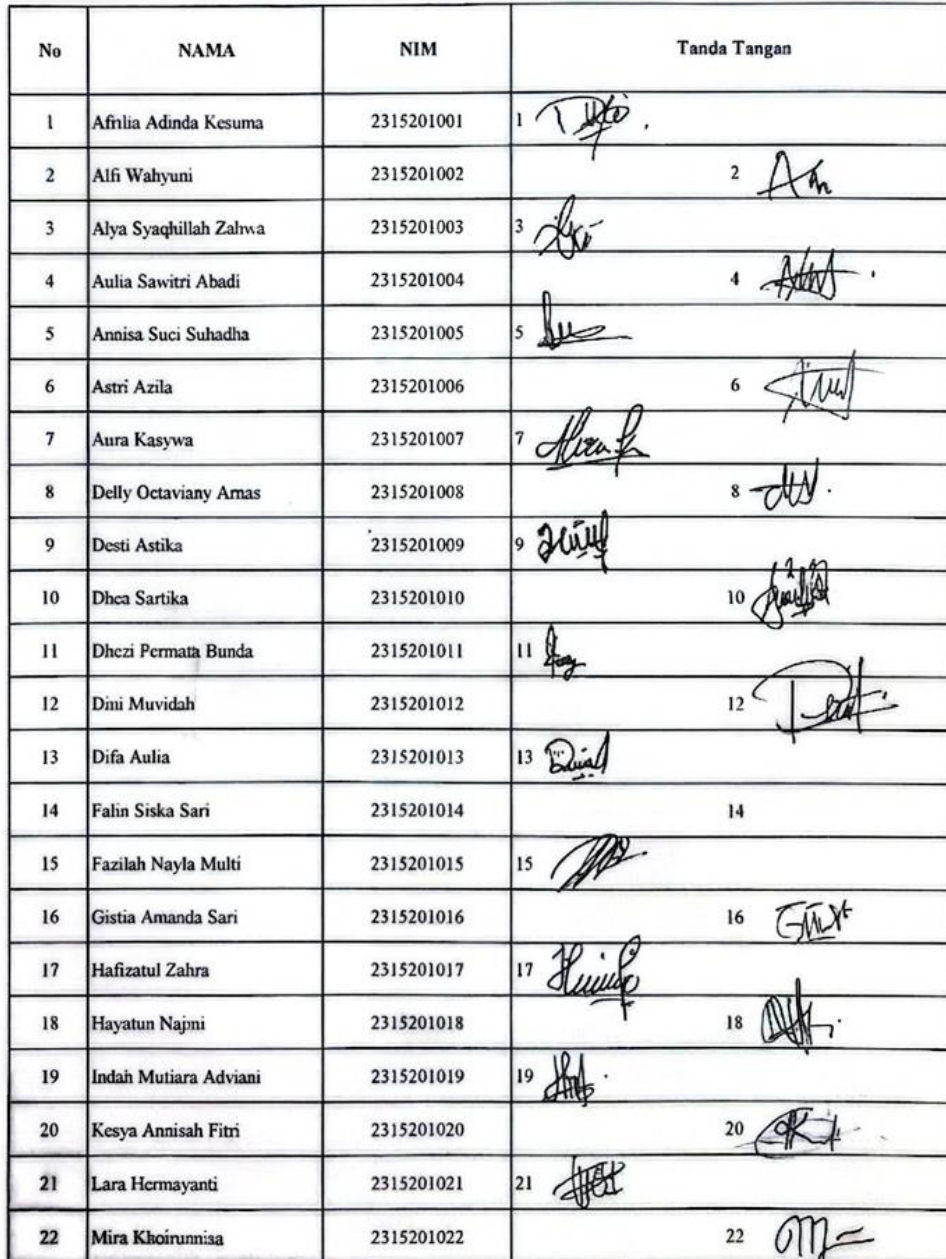 No NAMA NIM Tanda Tangan
1 Afrilia Adinda Kesuma 2315201001 1
2 Alfi Wahyuni 2315201002 2
3 Alya Syaqhillah Zahwa 2315201003 3
4 Aulia Sawitri Abadi 2315201004 4
5 Annisa Suci Suhadha 2315201005 5
6 Astri Azila 2315201006 6
7 Aura Kasywa 2315201007 7
8 Delly Octaviany Arnas 2315201008 8
9 Desti Astika 2315201009 9
10 Dhea Sartika 2315201010 10
11 Dhezi Permata Bunda 2315201011 11
12 Dini Muvidah 2315201012 12
13 Difa Aulia 2315201013 13
14 Falin Siska Sari 2315201014 14
15 Fazilah Nayla Multi 2315201015 15
16 Gistia Amanda Sari 2315201016 16
17 Hafizatul Zahra 2315201017 17
18 Hayatun Najmi 2315201018 18
19 Indah Mutiara Adviani 2315201019 19
20 Kesya Annisah Fitri 2315201020 20
21 Lara Hermayanti 2315201021 21
22 Mira Khoirunnisa 2315201022 22